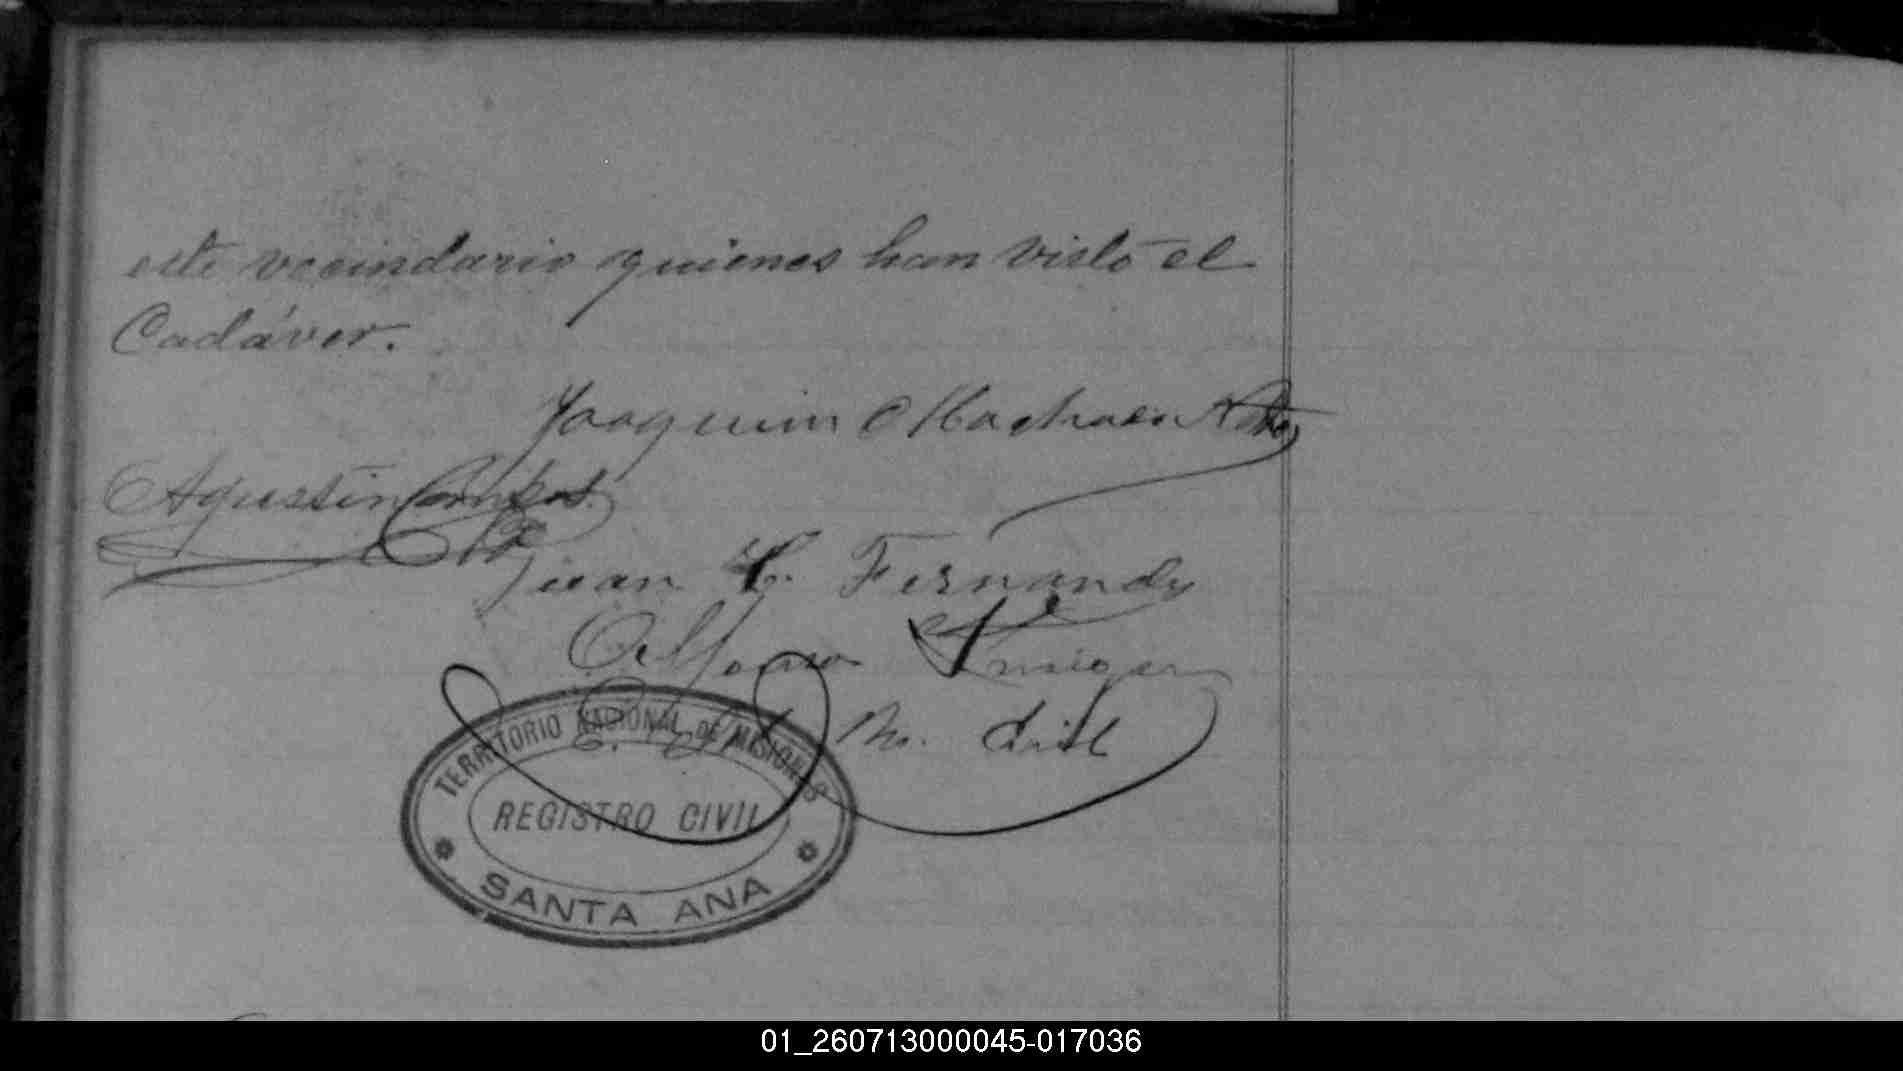 este vecindario quienes han visto el
Cadáver.
Joaquim Machado
Agustin Campos
Juan C. Fernandz
Alfonso
M.
TERRITORIO NACIONAL DE MISIONES
REGISTRO CIVIL
SANTA ANA
01_260713000045-017036